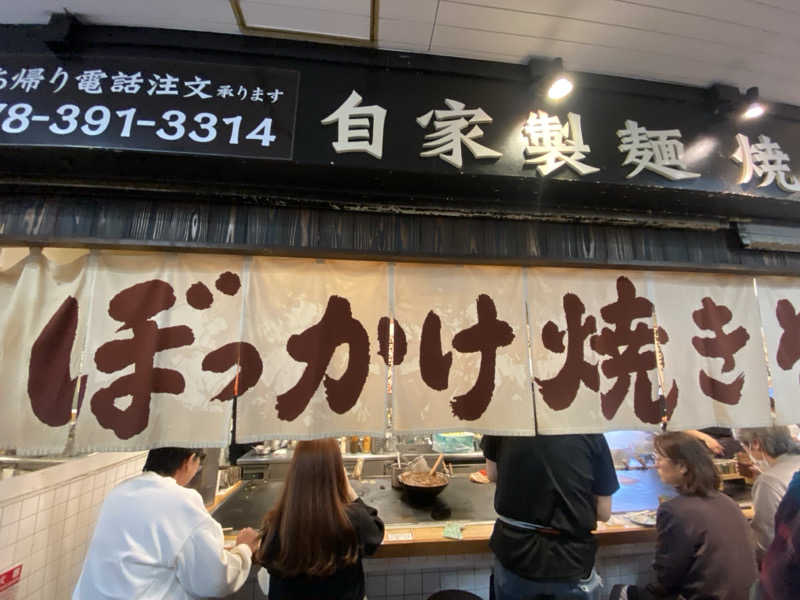 帰り電話注文承ります
78-391-3314
自家製麺 焼
ぼっかけ焼き